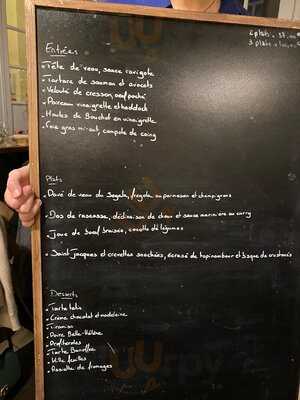 2 plats
3 plats
Entrées
. Tête de veau, sauce ravigote
. Tartare de saumon et avocats
. Velouté de cresson, oeuf poché
. Poireau vinaigrette et haddock
. Moules de Bouchot en vinaigrette
. Foie gras mi-cuit, compote de coing
Plats
. Pavé de veau du Ségala, fregola au parmesan et champignons
. Dos de rascasse, déclinaison de choux et sauce marinière au curry
. Joue de boeuf braisée, cocotte de légumes
. Saint Jacques et crevettes snackées, écrasé de topinambour et bisque de crustacés
Desserts
. Tarte tatin
. Crème chocolat et madeleine
. Tiramisu
. Poire Belle-Hélène
. Profiteroles
. Tarte Banoffee
. Mille feuilles
. Assiette de fromages